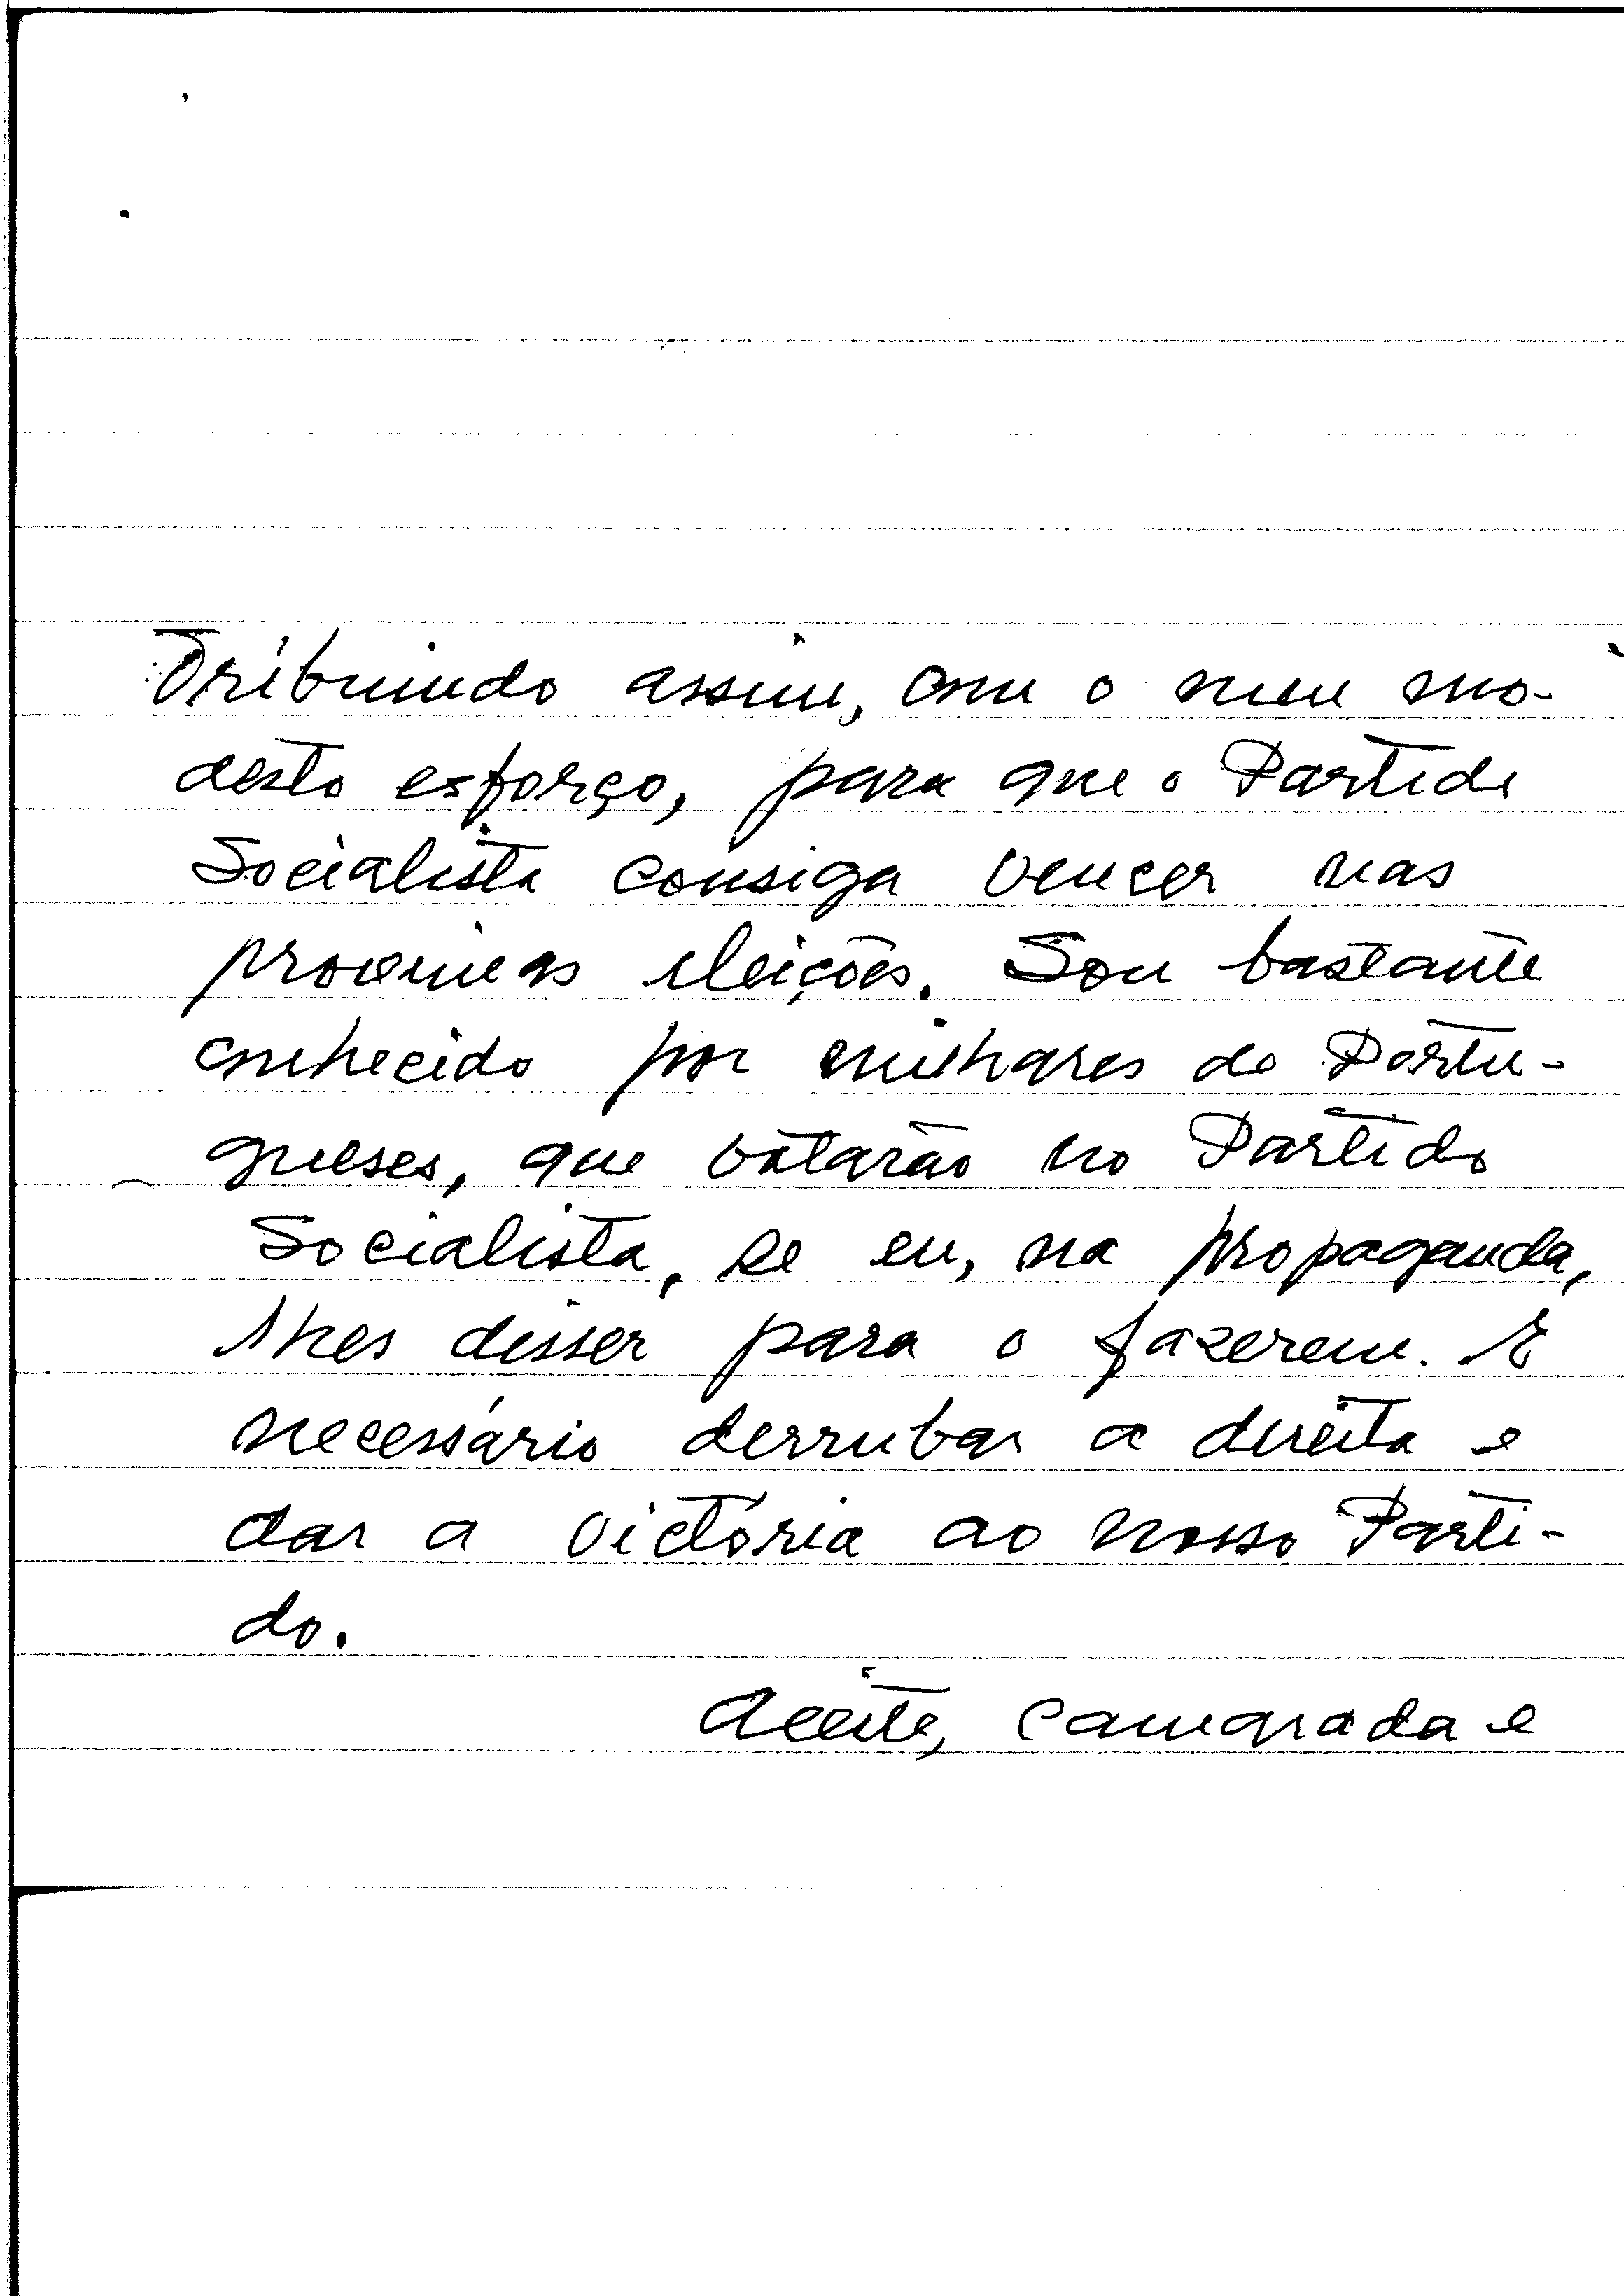 Tribuindo assim, com o meu mo-
desto esforço, para que o Partido
Socialista consiga vencer nas
proximas eleições. Sou bastante
conhecido por milhares de Portu-
gueses, que votarão no Partido
Socialista, se eu, na propaganda,
lhes disser para o fazerem. É
necessário derrubar a direita e
dar a victória ao nosso Parti-
do.
Aceite, camarada e